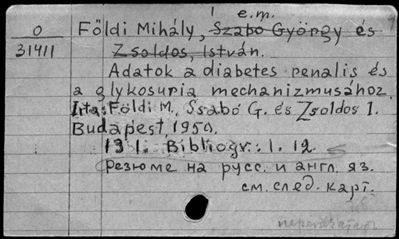 1 e.m.
O Földi Mihály, Szabó György és
31411 Zsoldos, István.
Adatok a diabetes renalis és
a glykosuria mechanizmusához.
Irta: Földi M., Szabó G. és Zsoldos I.
Budapest, 1950.
13 l. Bibliogr.: l. 12.
Резюме на русс. и англ. яз.
см. след. карт.